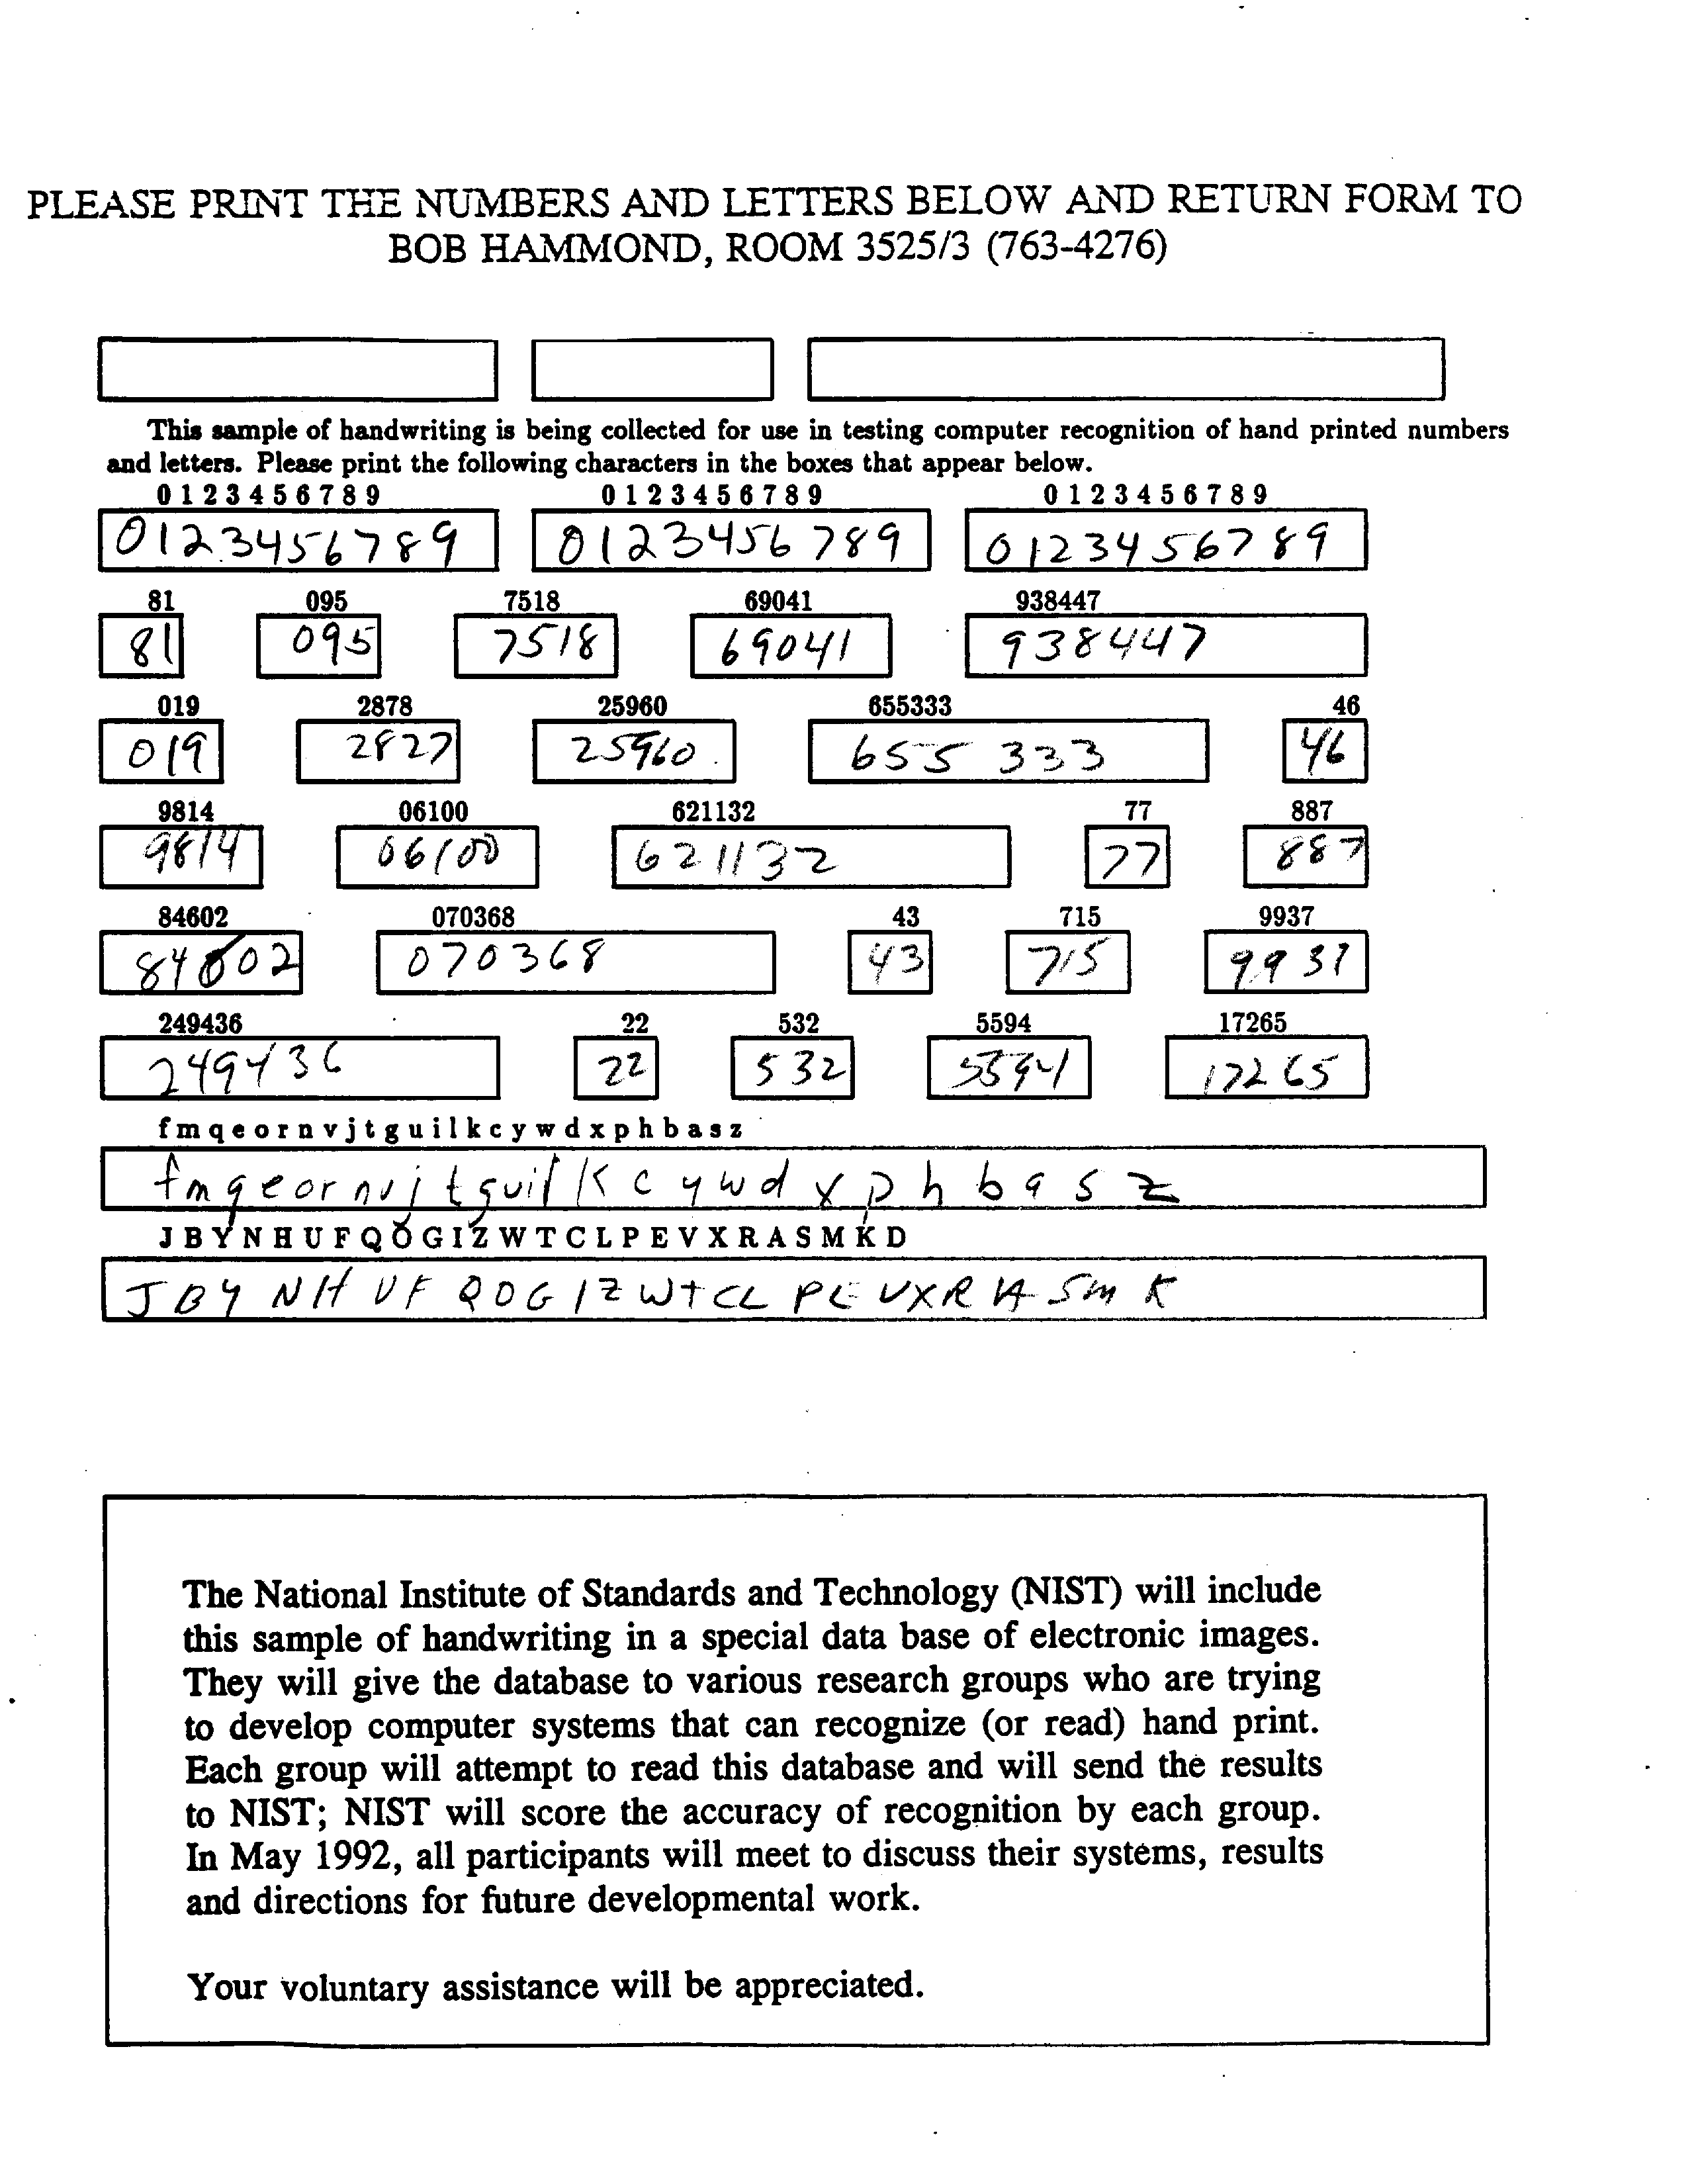 PLEASE PRINT THE NUMBERS AND LETTERS BELOW AND RETURN FORM TO
BOB HAMMOND, ROOM 3525/3 (763-4276)
This sample of handwriting is being collected for use in testing computer recognition of hand printed numbers
and letters. Please print the following characters in the boxes that appear below.
0 1 2 3 4 5 6 7 8 9 0 1 2 3 4 5 6 7 8 9 0 1 2 3 4 5 6 7 8 9
0123456789 0123456789 0123456789
81 095 7518 69041 938447
81 095 7518 69041 938447
019 2878 25960 655333 46
019 2827 25960 655 333 46
9814 06100 621132 77 887
9814 06100 621132 77 887
84602 070368 43 715 9937
84602 070368 43 715 9937
249436 22 532 5594 17265
249436 22 532 5594 17265
f m q e o r n v j t g u i l k c y w d x p h b a s z
f m q e o r n v j t g u i l k c y w d x p h b a s z
J B Y N H U F Q O G I Z W T C L P E V X R A S M K D
J B Y N H U F Q O G I Z W T C L P E V X R A S M K
The National Institute of Standards and Technology (NIST) will include
this sample of handwriting in a special data base of electronic images.
They will give the database to various research groups who are trying
to develop computer systems that can recognize (or read) hand print.
Each group will attempt to read this database and will send the results
to NIST; NIST will score the accuracy of recognition by each group.
In May 1992, all participants will meet to discuss their systems, results
and directions for future developmental work.
Your voluntary assistance will be appreciated.